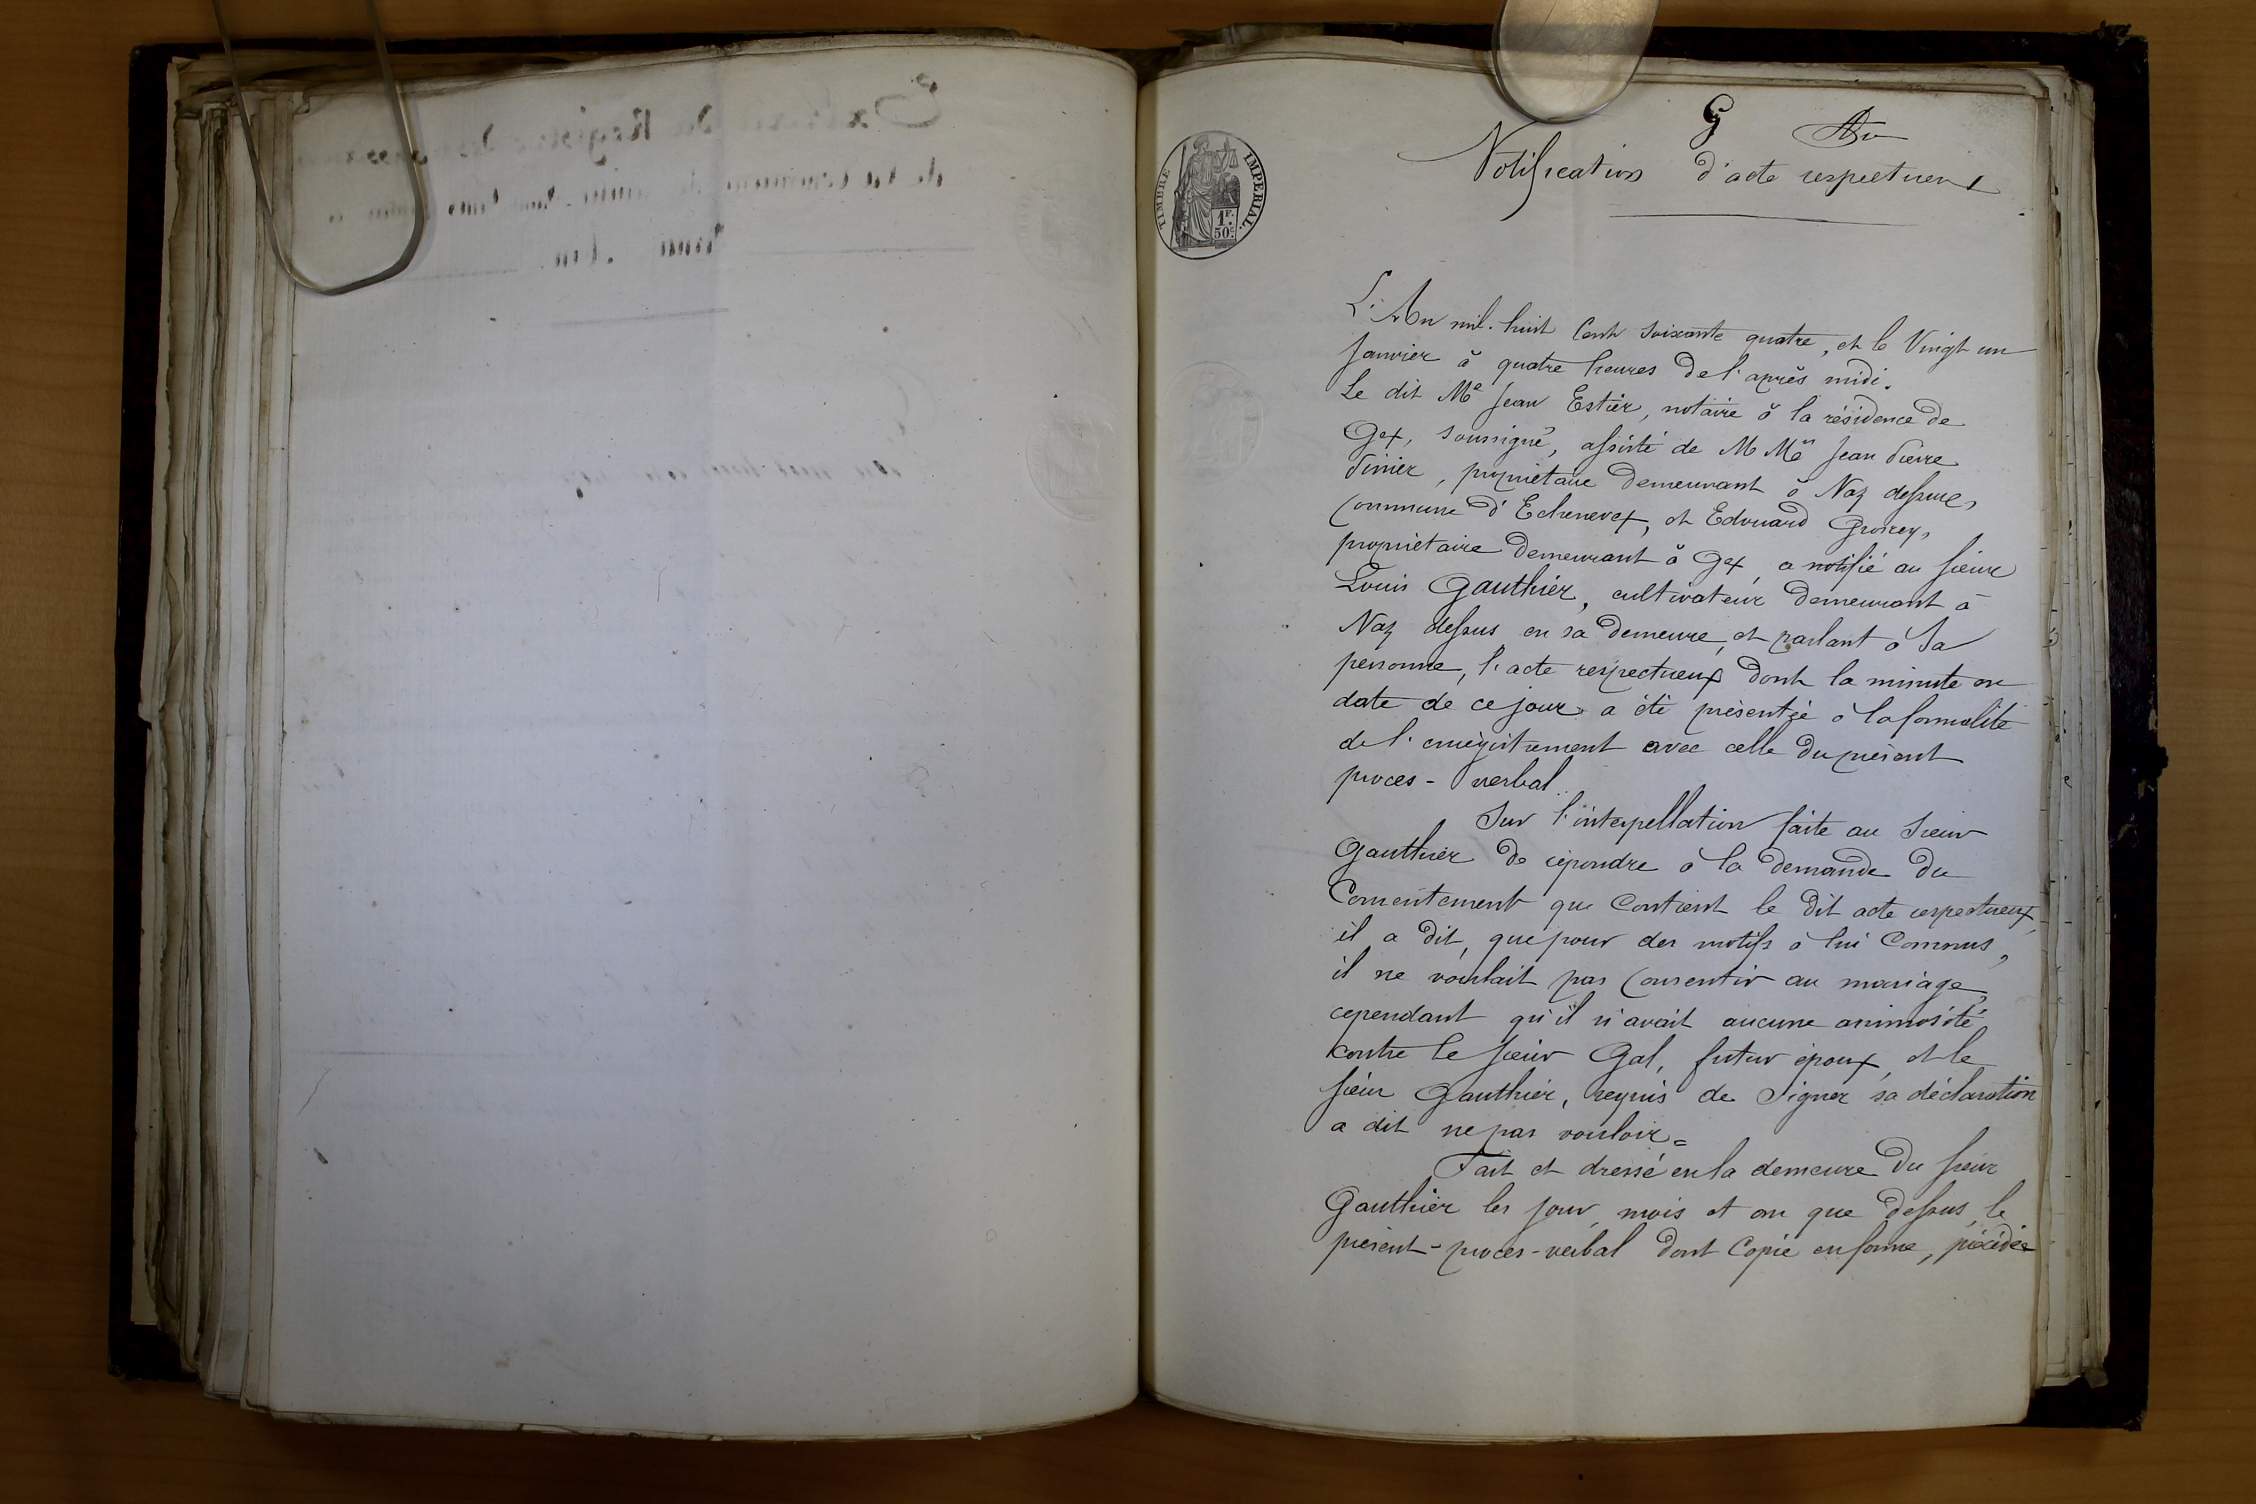 Extrait du Registre des
de la Commune de
G
Notification d'acte respectueux
TIMBRE IMPERIAL.
1F.
50c.
L'An mil. huit Cent soixante quatre, et le Vingt un
Janvier à quatre heures de l'après midi.
Le dit Me Jean Estier, notaire à la résidence de
Gex, soussigné, assisté de M Mrs Jean Pierre
Vinier, propriétaire demeurant à Naz dessus,
Commune d'Echenevex, et Edouard Grosrey,
propriétaire demeurant à Gex, a notifié au sieur
Louis Gauthier, cultivateur demeurant à
Naz dessus en sa demeure, et parlant à sa
personne, l'acte respectueux dont la minute en
date de ce jour a été présentée à la formalité
de l'enregistrement avec celle du présent
proces-verbal.
Sur l'interpellation faite au Sieur
Gauthier de répondre à la demande du
Consentement que Contient le dit acte respectueux,
il a dit, que pour des motifs à lui Connus,
il ne voulait pas Consentir au mariage,
cependant qu'il n'avait aucune animosité
contre le sieur Gal, futur époux, et le
sieur Gauthier, requis de signer sa déclaration
a dit ne pas vouloir =
Fait et dressé en la demeure du sieur
Gauthier les jour, mois et an que dessus, le
présent-proces-verbal dont Copie en forme, précédée